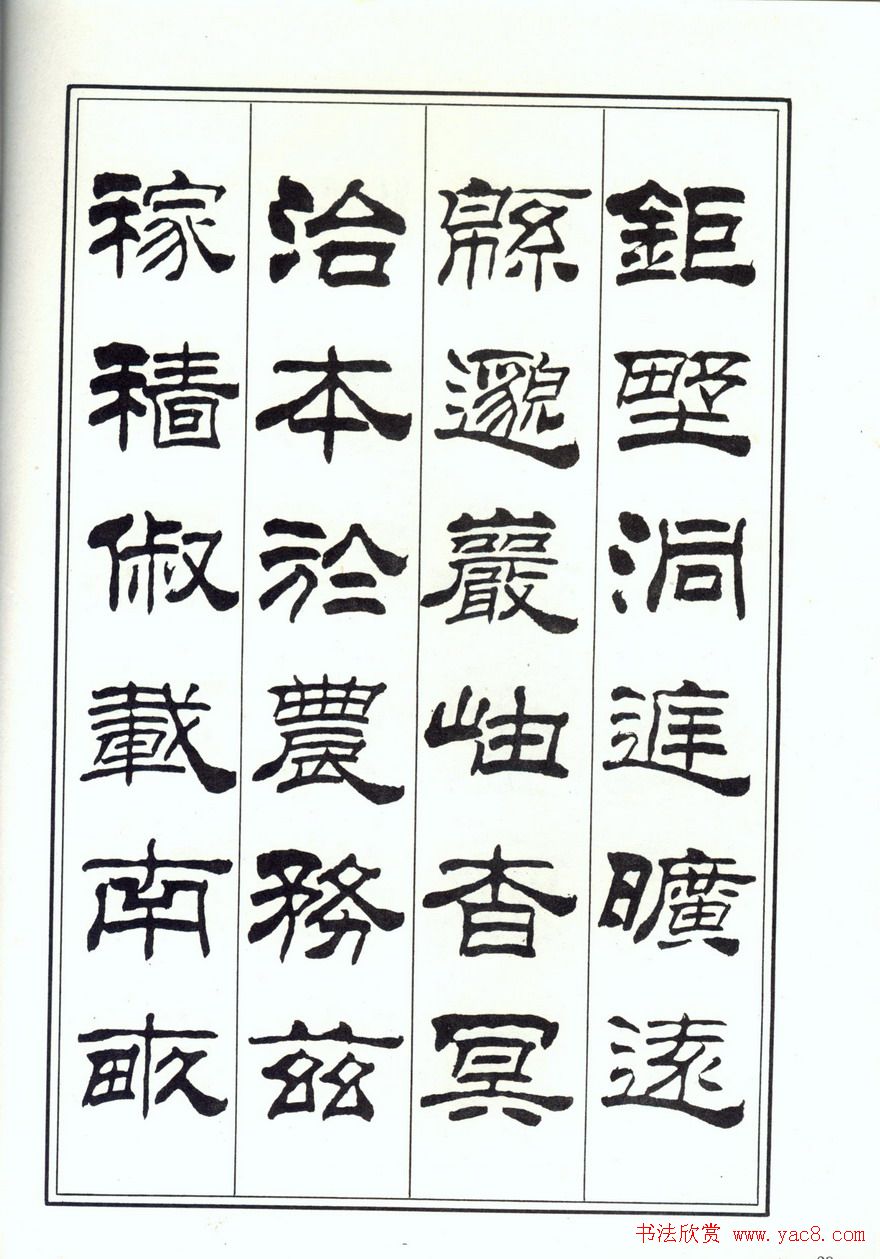 鉅野洞庭曠遠
緜邈巖岫杳冥
治本於農務茲
稼穡俶載南畝
书法欣赏 www.yac8.com